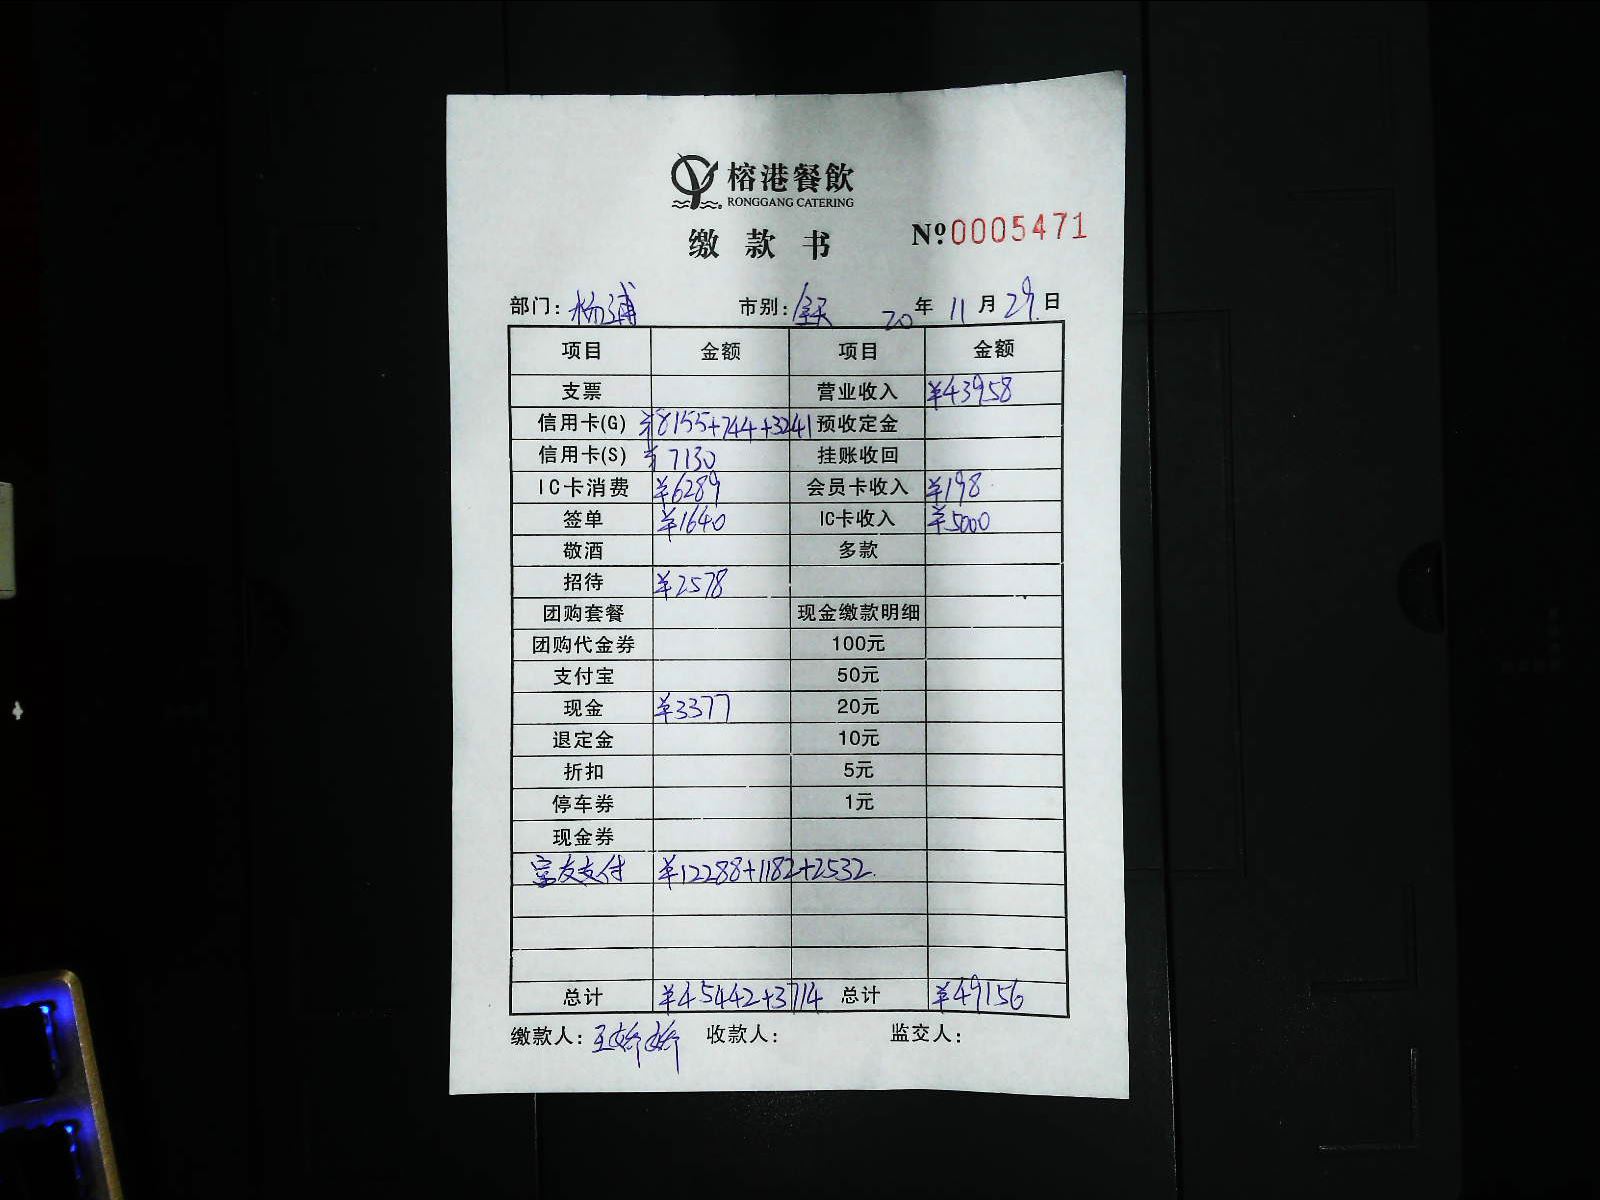 榕港餐飲
RONGGANG CATERING
缴款书
№0005471
部门：杨浦 市别：全天 20年11月29日
项目 金额 项目 金额
支票 营业收入 ¥43958
信用卡(G) ¥8155+744+3241 预收定金
信用卡(S) ¥7130 挂账收回
IC卡消费 ¥6289 会员卡收入 ¥198
签单 ¥1640 IC卡收入 ¥5000
敬酒 多款
招待 ¥2578
团购套餐 现金缴款明细
团购代金券 100元
支付宝 50元
现金 ¥3377 20元
退定金 10元
折扣 5元
停车券 1元
现金券
支付 ¥12288+1182+2532
总计 ¥45442+3714 总计 ¥49156
缴款人：王娇娇 收款人： 监交人：